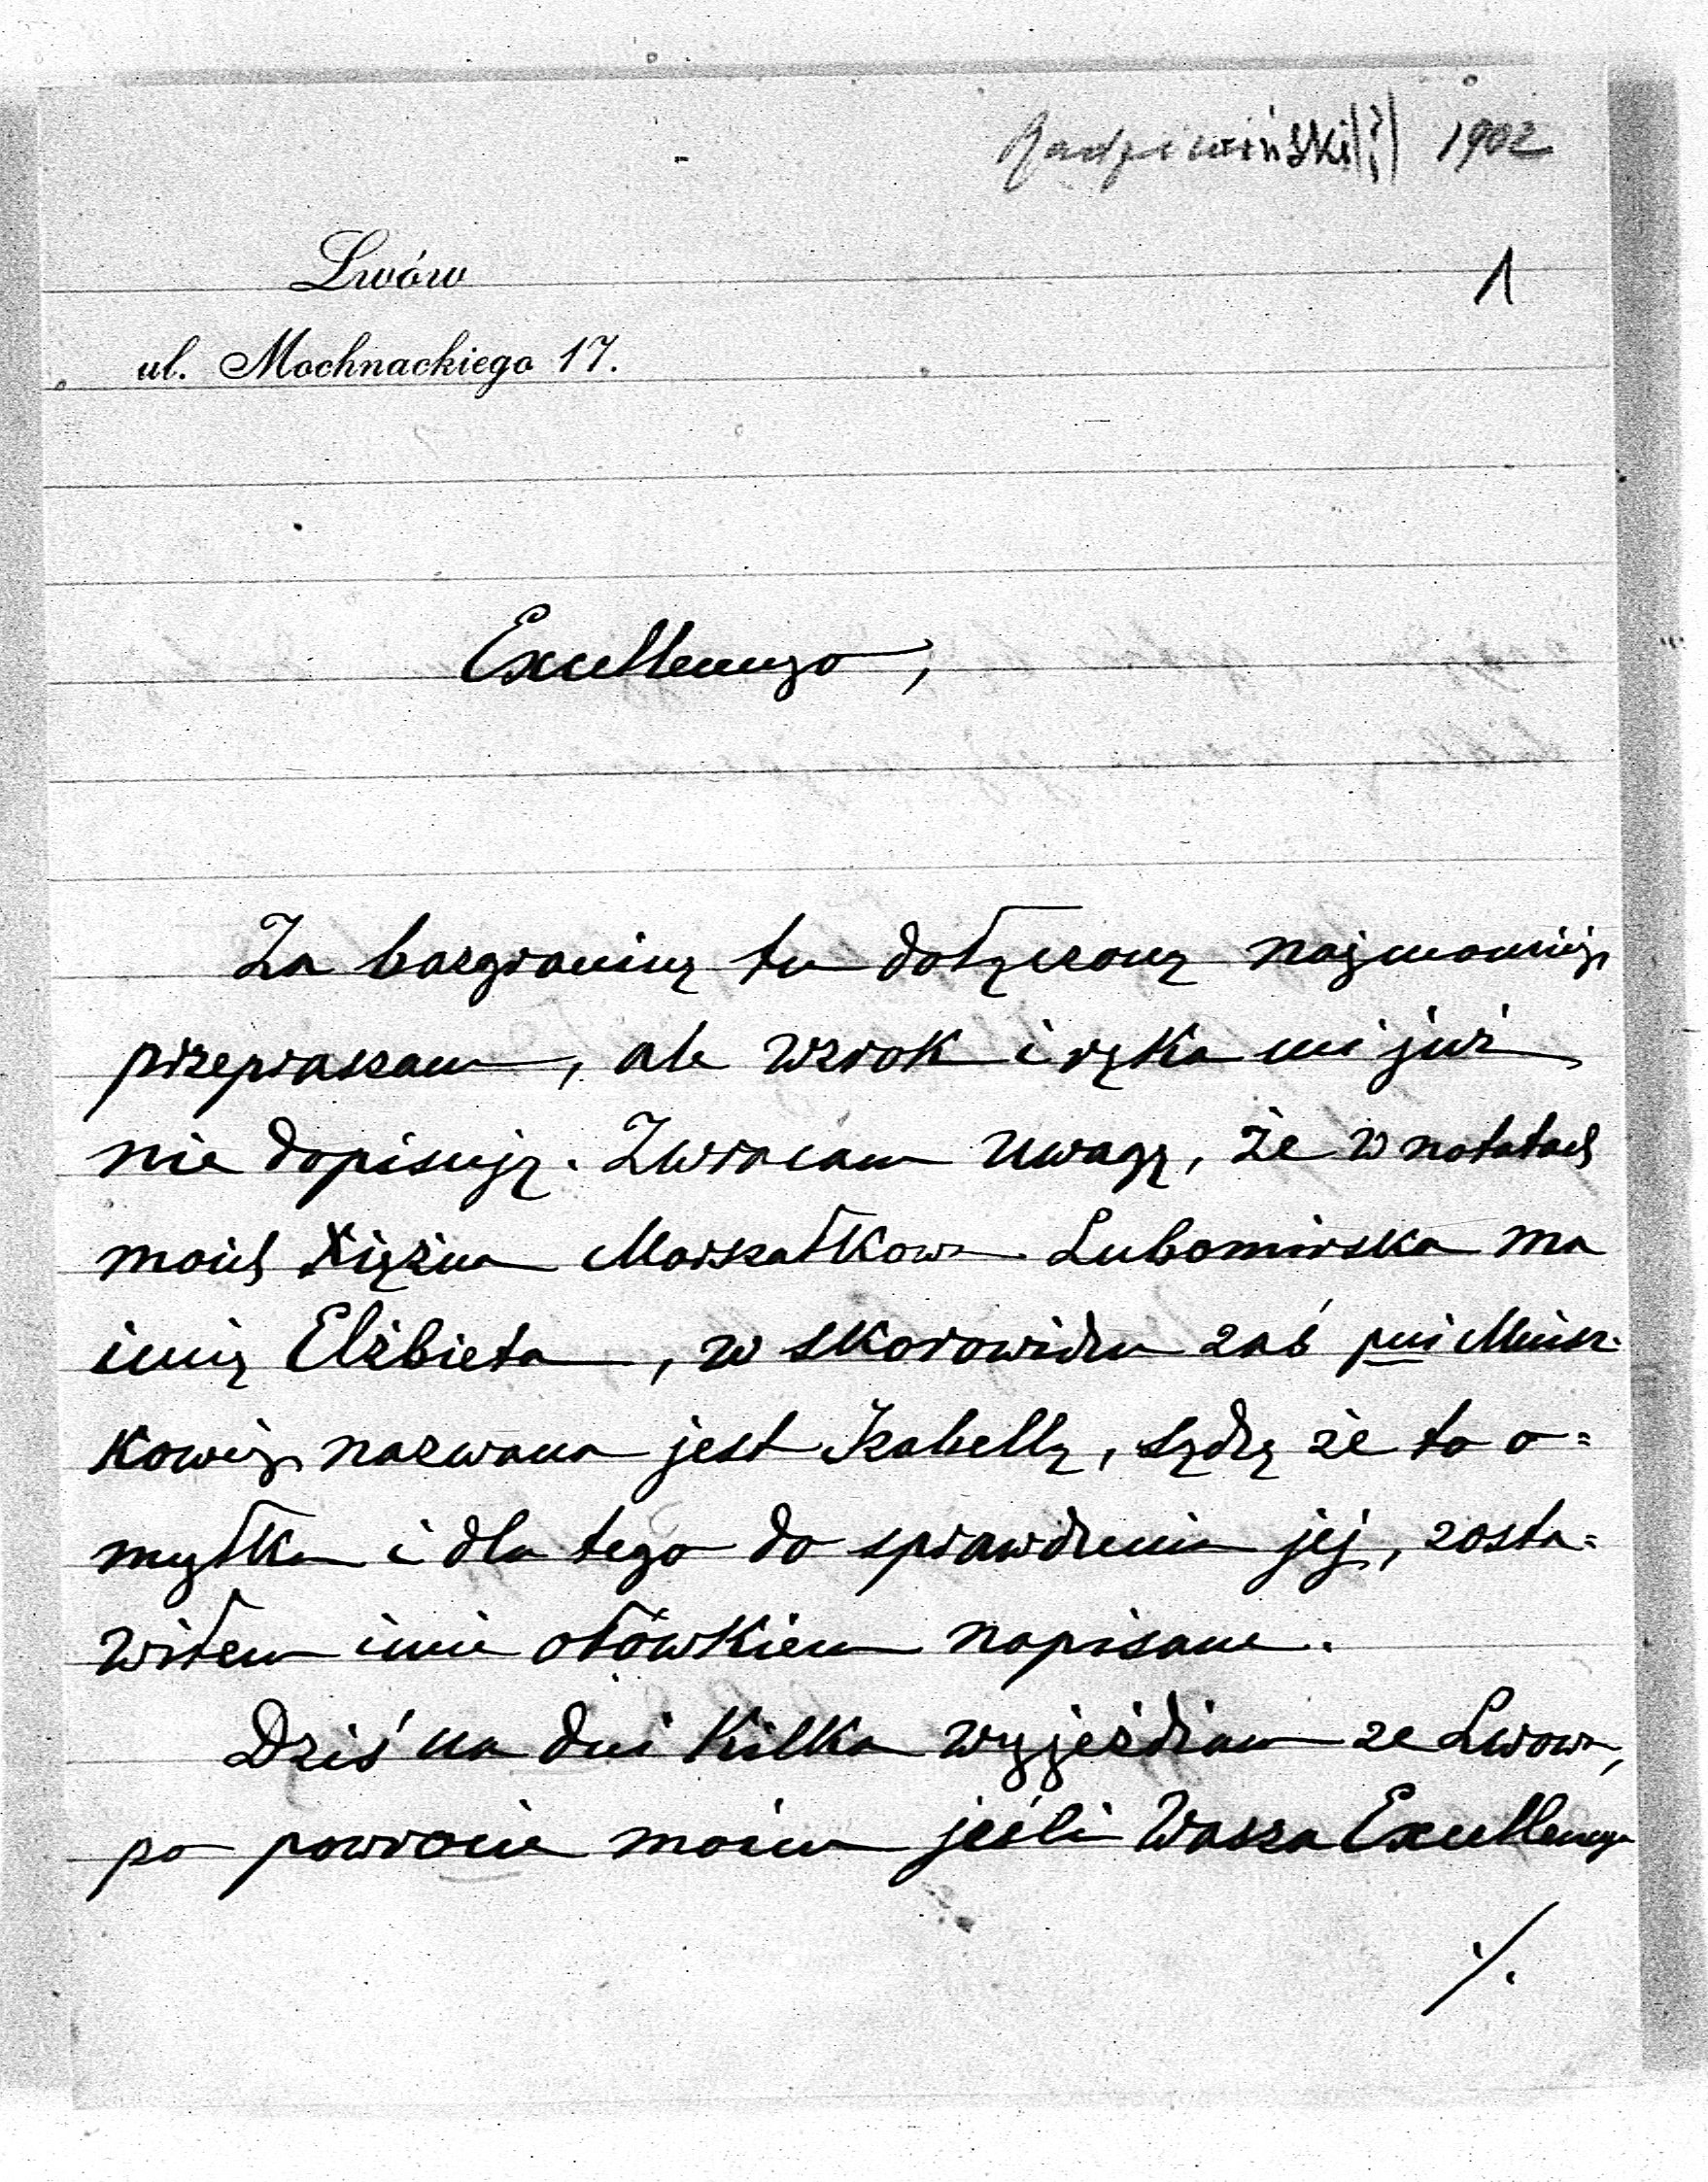 Radziwiński(?) 1902
1
Lwów
ul. Mochnackiego 17.
Excellencyo,
Za bazgraninę tu dołączoną najmocniej
przepraszam, ale wzrok i ręka mi już
nie dopisują. Zwracam uwagę, że w notatach
moich Xiężna Marszałkowa Lubomirska ma
imię Elżbieta, w skorowidzu zaś pni Mnisz-
kowej nazwana jest Izabellą, sądzę że to o=
myłka i dla tego do sprawdzenia jej, zosta=
wiłem imie ołówkiem napisane.
Dziś na dni kilka wyjeżdżam ze Lwowa,
po powrocie moim jeśli Wasza Excellencya
./.